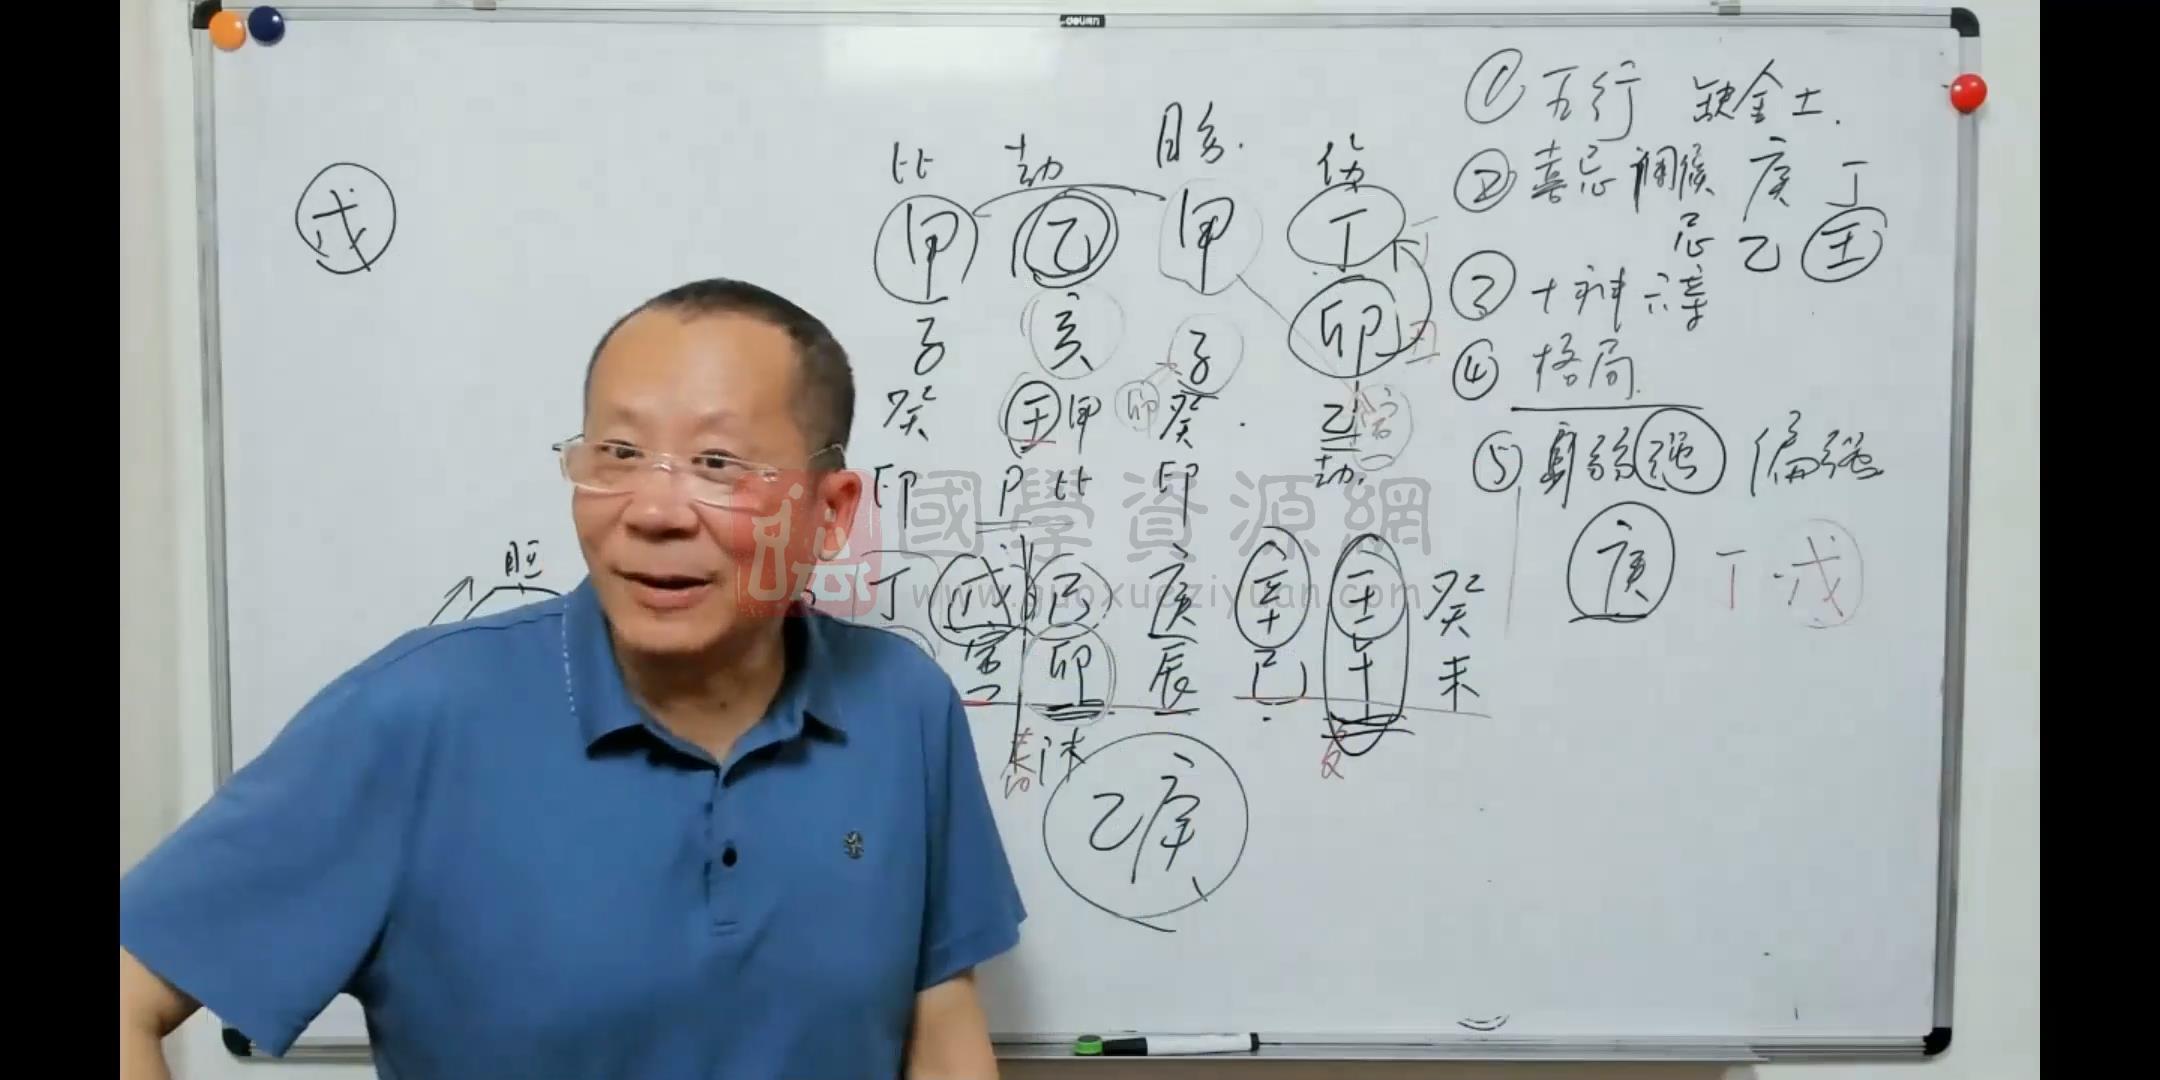 deli
① 五行 缺金土.
② 喜忌 调候 庚 丁
忌 乙 壬
③ 十神六亲
④ 格局.
⑤ 身弱强 偏强
庚 丁 戊
戊
比 劫 日主. 伤
甲 乙 甲 丁
子 亥 子 卯
癸 壬甲 卯 癸 乙
印 P 比 印 劫.
國學資源網
www.guoxueziyuan.com
丁 戊 己 庚 辛 壬 癸
寅 卯 辰 巳 午 未
乙庚